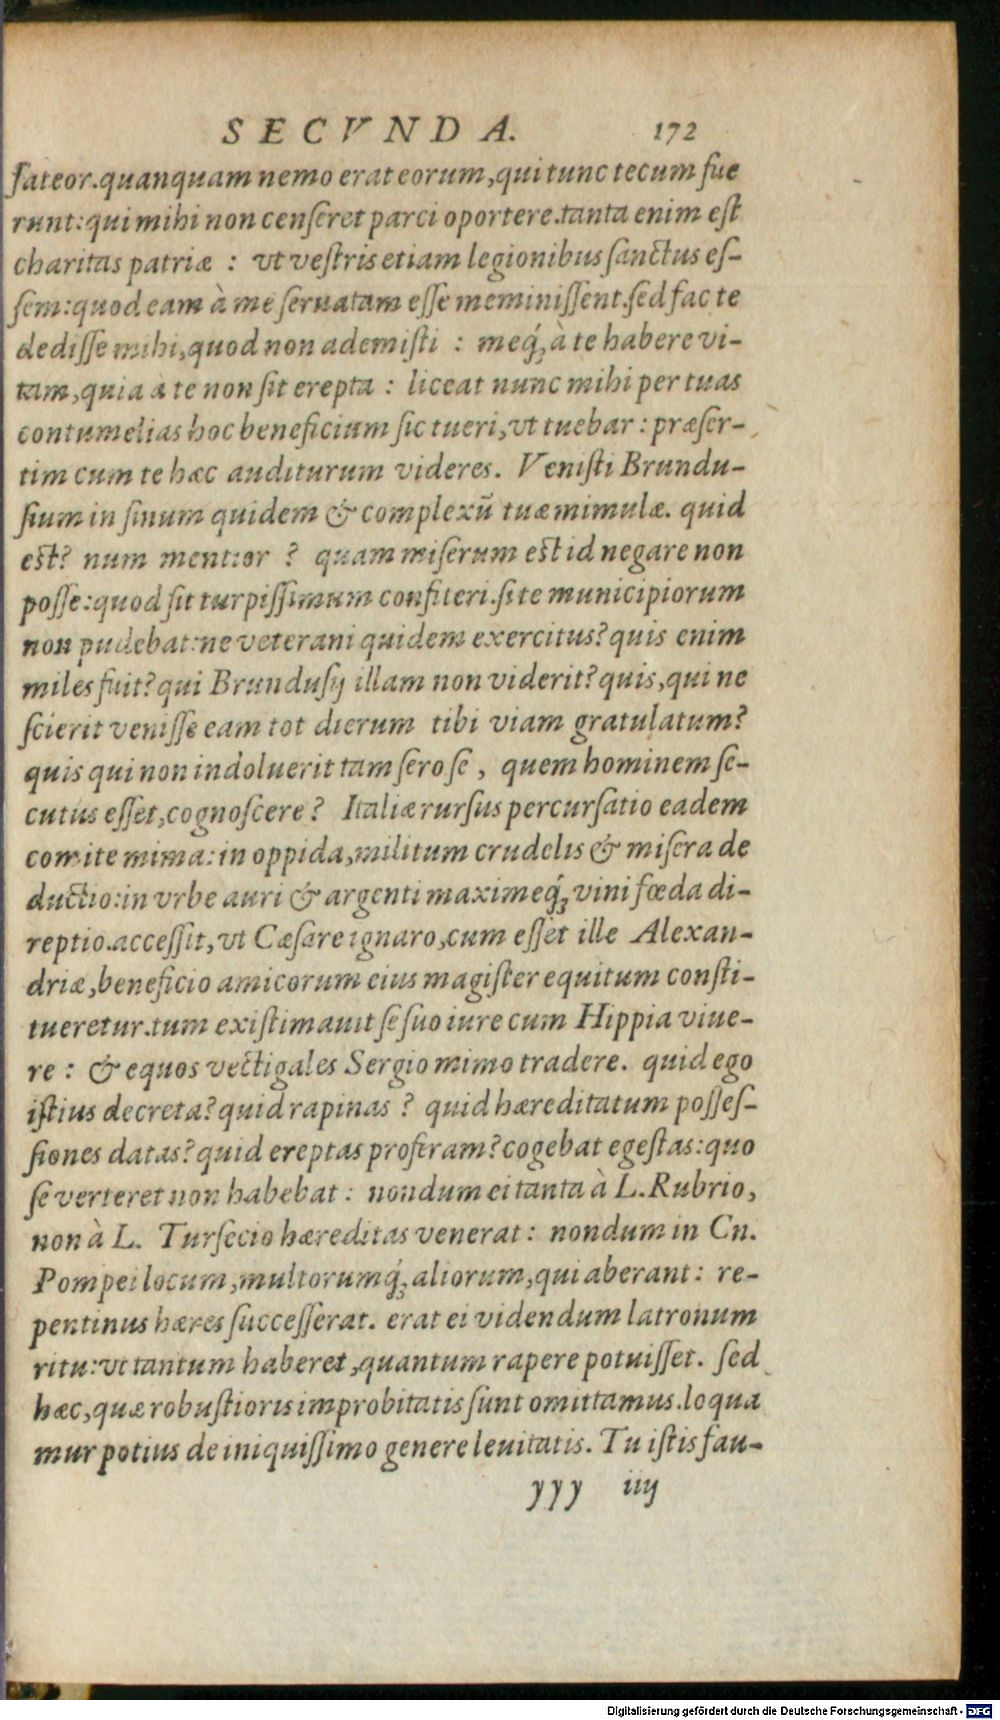 SECVNDA. 172
fateor.quanquam nemo erat eorum,qui tunc tecum fue
runt:qui mihi non censeret parci oportere.tanta enim est
charitas patriæ : vt vestris etiam legionibus sanctus es-
sem:quod eam à me seruatam esse meminissent.sed fac te
dedisse mihi,quod non ademisti : meq́ꝫ à te habere vi-
tam,quia à te non sit erepta : liceat nunc mihi per tuas
contumelias hoc beneficium sic tueri,vt tuebar : præser-
tim cum te hæc auditurum videres. Venisti Brundu-
sium in sinum quidem & complexũ tuæ mimulæ. quid
est? num mentior ? quam miserum est id negare non
posse:quod sit turpissimum confiteri.si te municipiorum
non pudebat:ne veterani quidem exercitus?quis enim
miles fuit?qui Brundusij illam non viderit?quis,qui ne
scierit venisse eam tot dierum tibi viam gratulatum?
quis qui non indoluerit tam sero se , quem hominem se-
cutus esset,cognoscere? Italiæ rursus percursatio eadem
comite mima:in oppida,militum crudelis & misera de
ductio:in vrbe auri & argenti maximeq́ꝫ vini fœda di-
reptio.accessit,vt Cæsare ignaro,cum esset ille Alexan-
driæ,beneficio amicorum eius magister equitum consti-
tueretur.tum existimauit se suo iure cum Hippia viue-
re : & equos vectigales Sergio mimo tradere. quid ego
istius decreta?quid rapinas ? quid hæreditatum posses-
siones datas?quid ereptas proferam?cogebat egestas:quo
se verteret non habebat : nondum ei tanta à L.Rubrio,
non à L. Tursecio hæreditas venerat : nondum in Cn.
Pompei locum,multorumq́ꝫ aliorum,qui aberant : re-
pentinus hæres successerat. erat ei videndum latronum
ritu:vt tantum haberet,quantum rapere potuisset. sed
hæc,quæ robustioris improbitatis sunt omittamus.loqua
mur potius de iniquissimo genere leuitatis. Tu istis fau-
yyy iiij
Digitalisierung gefördert durch die Deutsche Forschungsgemeinschaft - DFG